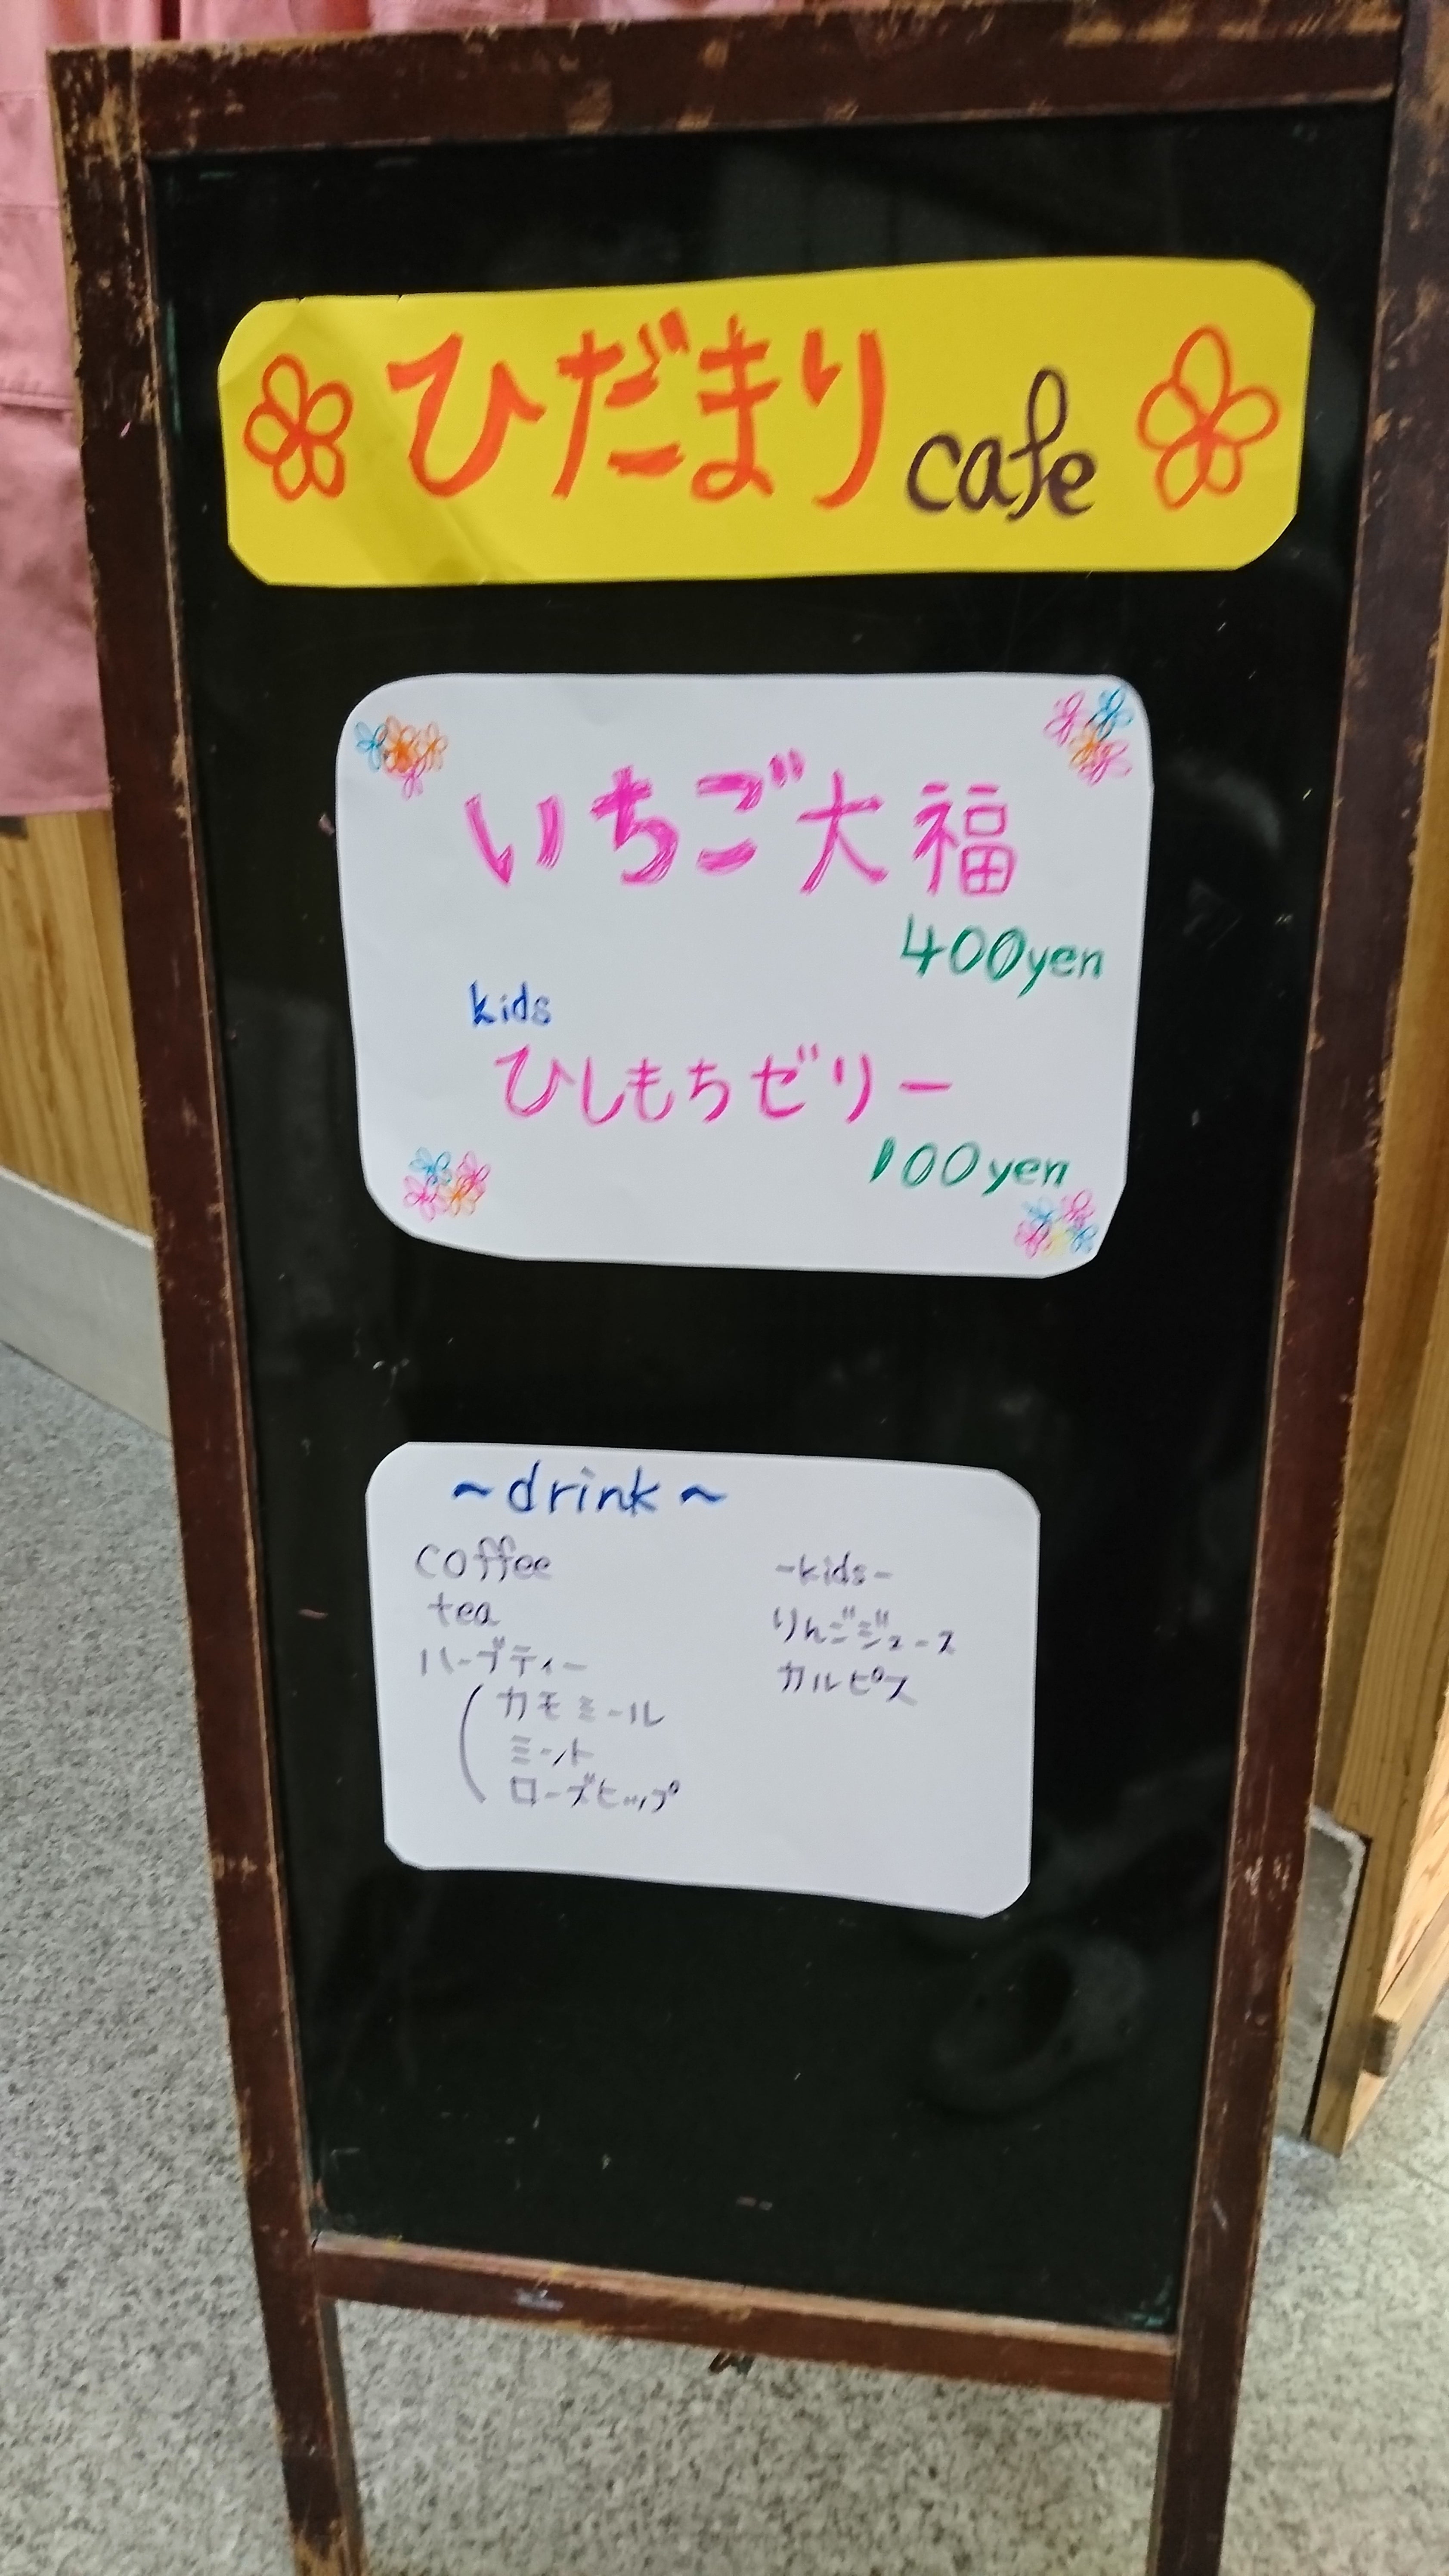 ひだまり cafe
いちご大福
400yen
kids
ひしもちゼリー
100yen
~drink~
coffee
tea
ハーブティー
カモミール
ミント
ローズヒップ
-kids-
りんごジュース
カルピス